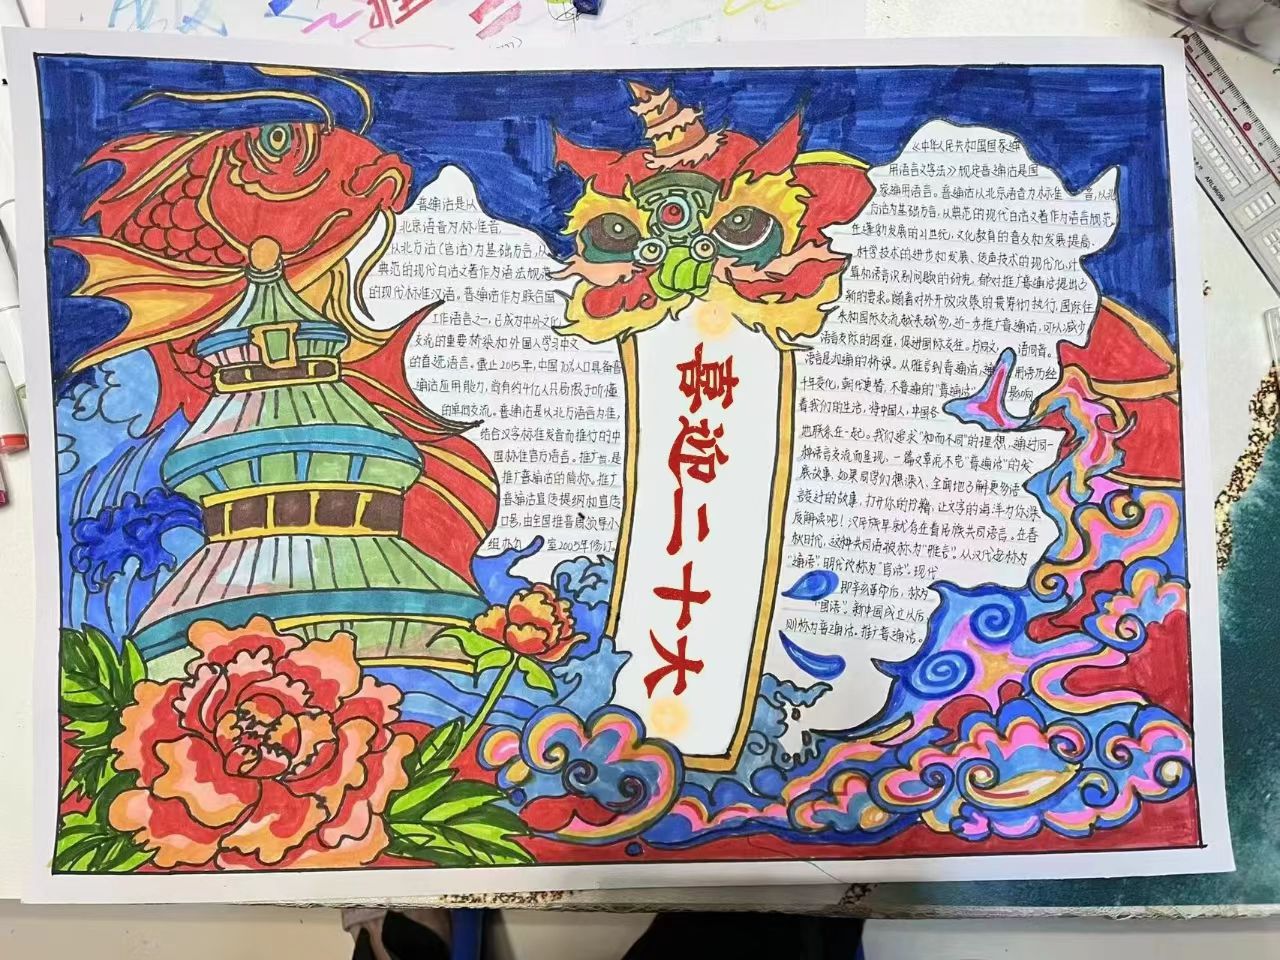 普通话是以
北京语音为标准音,
以北方话(官话)为基础方言,以
典范的现代白话文著作为语法规范
的现代标准汉语。普通话作为联合国
工作语言之一,已成为中外文化
交流的重要桥梁和外国人学习中文
的首选语言。截止2015年,中国70%人口具备普
通话应用能力,尚有约4亿人只局限于听懂
的单向交流。普通话是以北方语音为准,
结合汉字标准发音而推行的中
国标准官方语言。推广普,是
推广普通话的简称。推广
普通话宣传提纲和宣传
口号,由全国推普周领导小
组办公室2005年修订。
喜迎二十大
《中华人民共和国国家通
用语言文字法》规定普通话是国
家通用语言。普通话以北京语音为标准音,以北
方话为基础方言,以典范的现代白话文著作为语法规范
在蓬勃发展的21世纪,文化教育的普及和发展提高、
科学技术的进步和发展、传声技术的现代化,计
算和语言识别问题的研究,都对推广普通话提出了
新的要求。随着对外开放政策的最佳执行,国际往
来和国际交流越来越多,近一步推广普通话,可以减少
语言交际的困难,促进国际交往。方同文,语同音。
语言是沟通的桥梁。从雅言到普通话,通用语历经
千年变化,朝代更替,不普通的"普通话"影响
着我们的生活,将中国人,中国各
地联系在一起。我们追求"和而不同"的理想,通过同一
种语言交流而呈现,一篇文章说不完"普通话"的发
展故事,如果同学们想深入、全面地了解更多语
言统计的故事,打开你的书籍,让文字的海洋为你深
度解读吧!汉民族早就有在着民族共同语言。在春
秋时代,这种共同语被称为"雅言"。从汉代起称为
"通语",明代改称为"官话"。现代
即辛亥革命后,称为
"国语",新中国成立以后,
则称为普通话。推广普通话。